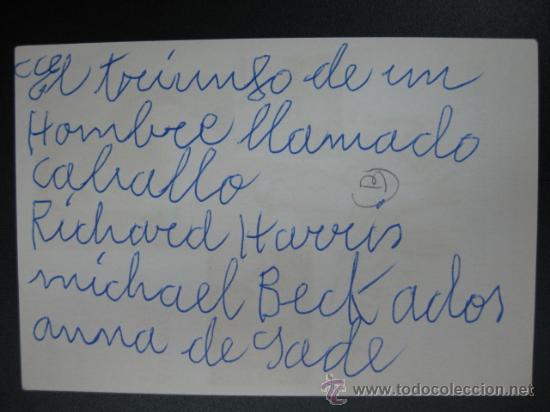 El triunfo de un
Hombre llamado
caballo
Richard Harris
michael Beck ados
anna de Sade
www.todocoleccion.net